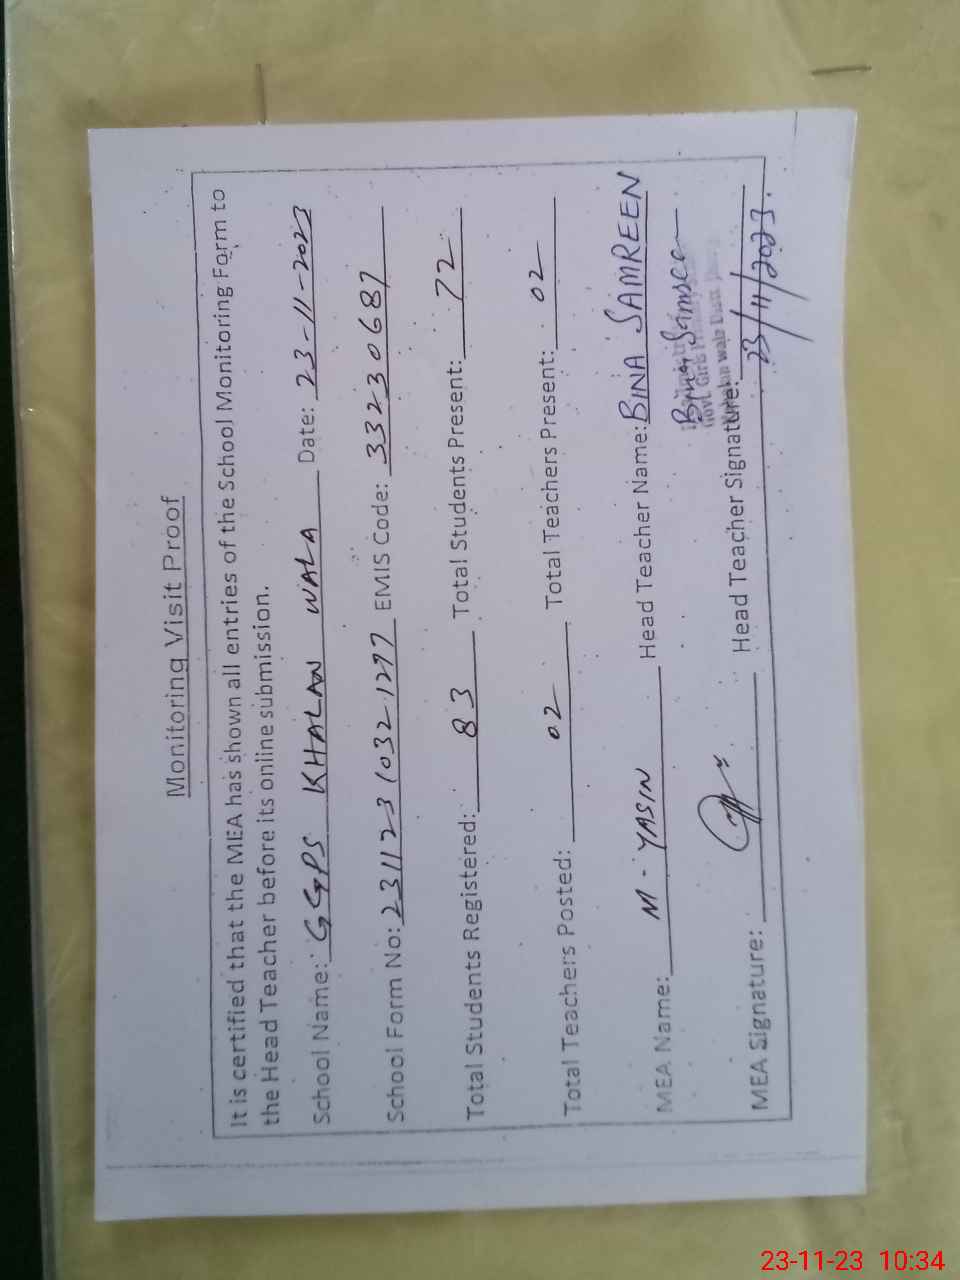 Monitoring Visit Proof
It is certified that the MEA has shown all entries of the School Monitoring Form to
the Head Teacher before its online submission.
School Name: GGPS KHALAN WALA Date: 23-11-2023
School Form No: 231123 1032 1297 EMIS Code: 33230687
Total Students Registered: 83 Total Students Present: 72
Total Teachers Posted: 02 Total Teachers Present: 02
MEA Name: M. YASIN Head Teacher Name: BINA SAMREEN
Govt. Girls
wala Distt
MEA Signature: Head Teacher Signature:
23/11/2023.
23-11-23 10:34